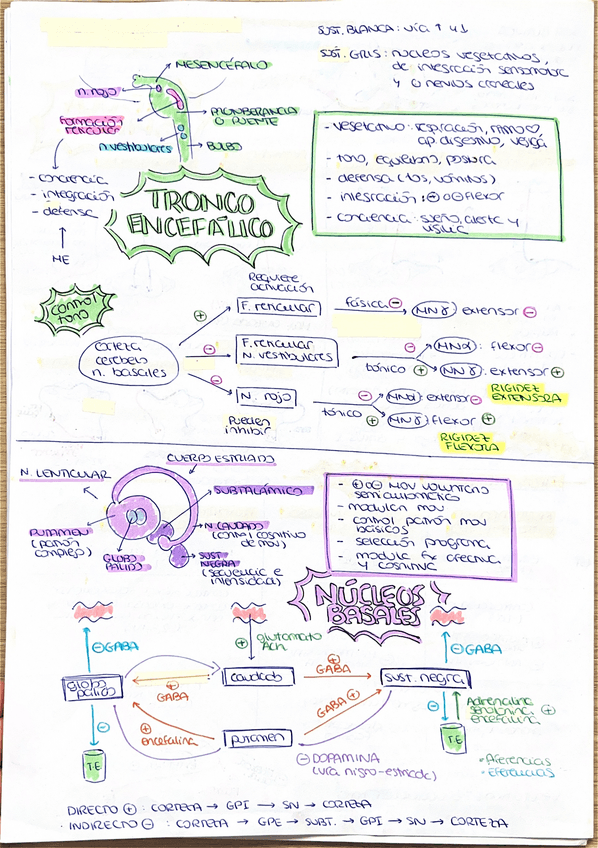 SUST. BLANCA: vía ↑ y ↓
SUST. GRIS: núcleos vegetativos,
de integración sensomotora
y o nervios craneales
MESENCÉFALO
n. rojo
FORMACIÓN
RETICULAR
PROTUBERANCIA
O PUENTE
n. vestibulares
BULBO
- conciencia
- integración
- defensa
NE
TRONCO
ENCEFÁLICO
- vegetativo: respiración, ritmo ♡,
ap. digestivo, vejiga
- tono, equilibrio, postura
- defensa (tos, vómitos)
- integración: ⊕ o ⊖ flexor
- conciencia: sueño, alerta y
vigilia
CONTROL
TONO
corteza
cerebelo
n. basales
Requiere
activación
⊕
F. reticular
fásica ⊖
MNγ extensor ⊖
⊖
F. reticular
N. vestibulares
⊖ MNα: flexor ⊖
tónico ⊕ MNγ: extensor ⊕
⊖
N. rojo
Pueden
inhibir
⊖ MNα: extensor ⊖
RIGIDEZ
EXTENSORA
tónico ⊕ MNγ: flexor ⊕
RIGIDEZ
FLEXORA
CUERPO ESTRIADO
N. LENTICULAR
SUBTALÁMICO
PUTAMEN
(patrón
complejo)
GLOBO
PÁLIDO
N. CAUDADO
(control cognitivo
de mov)
SUST.
NEGRA
(secuencia e
intensidad)
- ⊕ o ⊖ mov voluntario
semiautomático
- modulan mov
- control patrón mov
básicos
- selección programa
- modula fx afectiva
y cognitiva
NÚCLEOS
BASALES
⊖ GABA
⊕ glutamato
Ach
⊖ GABA
globo
pálido
⊕
GABA
caudado
⊕
GABA
sust. negra
⊕
encefalina
putamen
GABA ⊕
⊖
T.E
⊖ DOPAMINA
(vía nigro-estriada)
⊖
T.E
Adrenalina
serotonina ⊕
encefalina
• Aferencias
• Eferencias
DIRECTO ⊕: CORTEZA → GPI → SN → CORTEZA
· INDIRECTO ⊖: CORTEZA → GPE → SUBT. → GPI → SN → CORTEZA